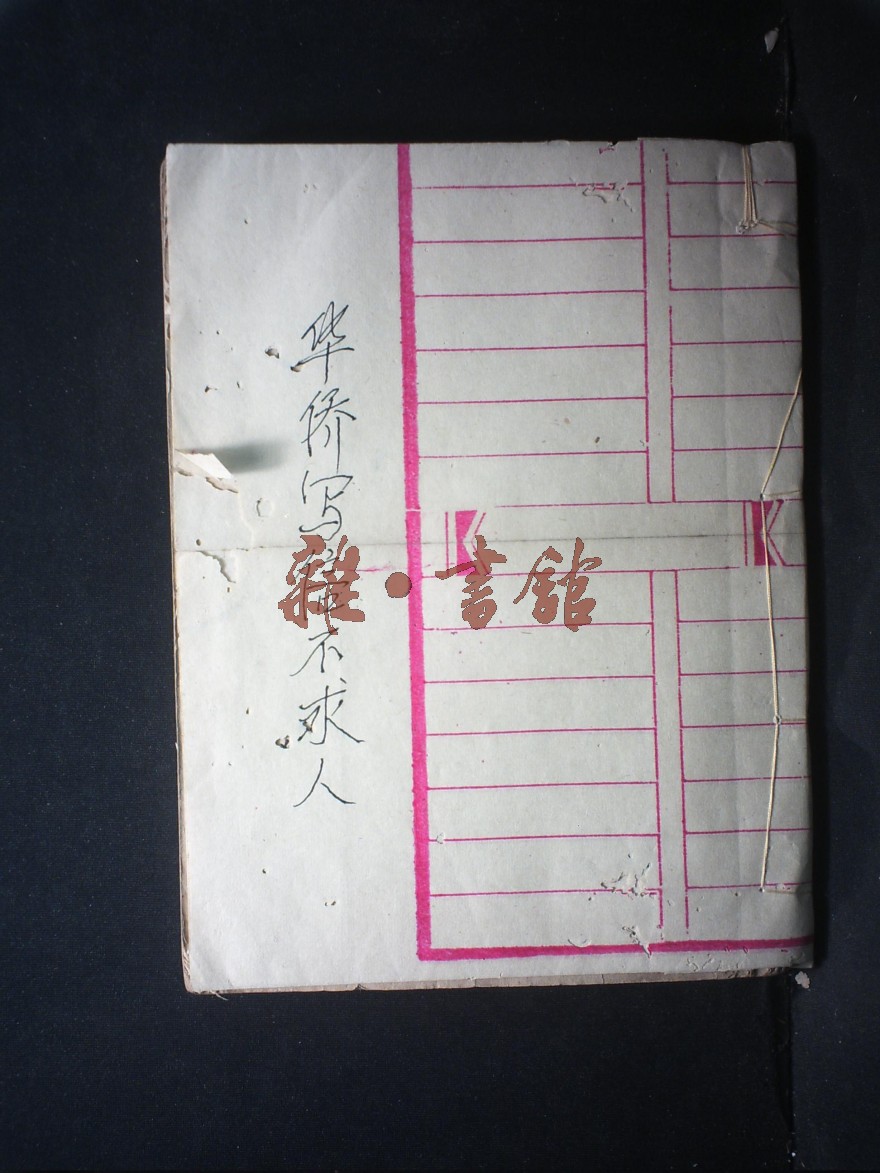 华侨写信不求人
雜·書舘